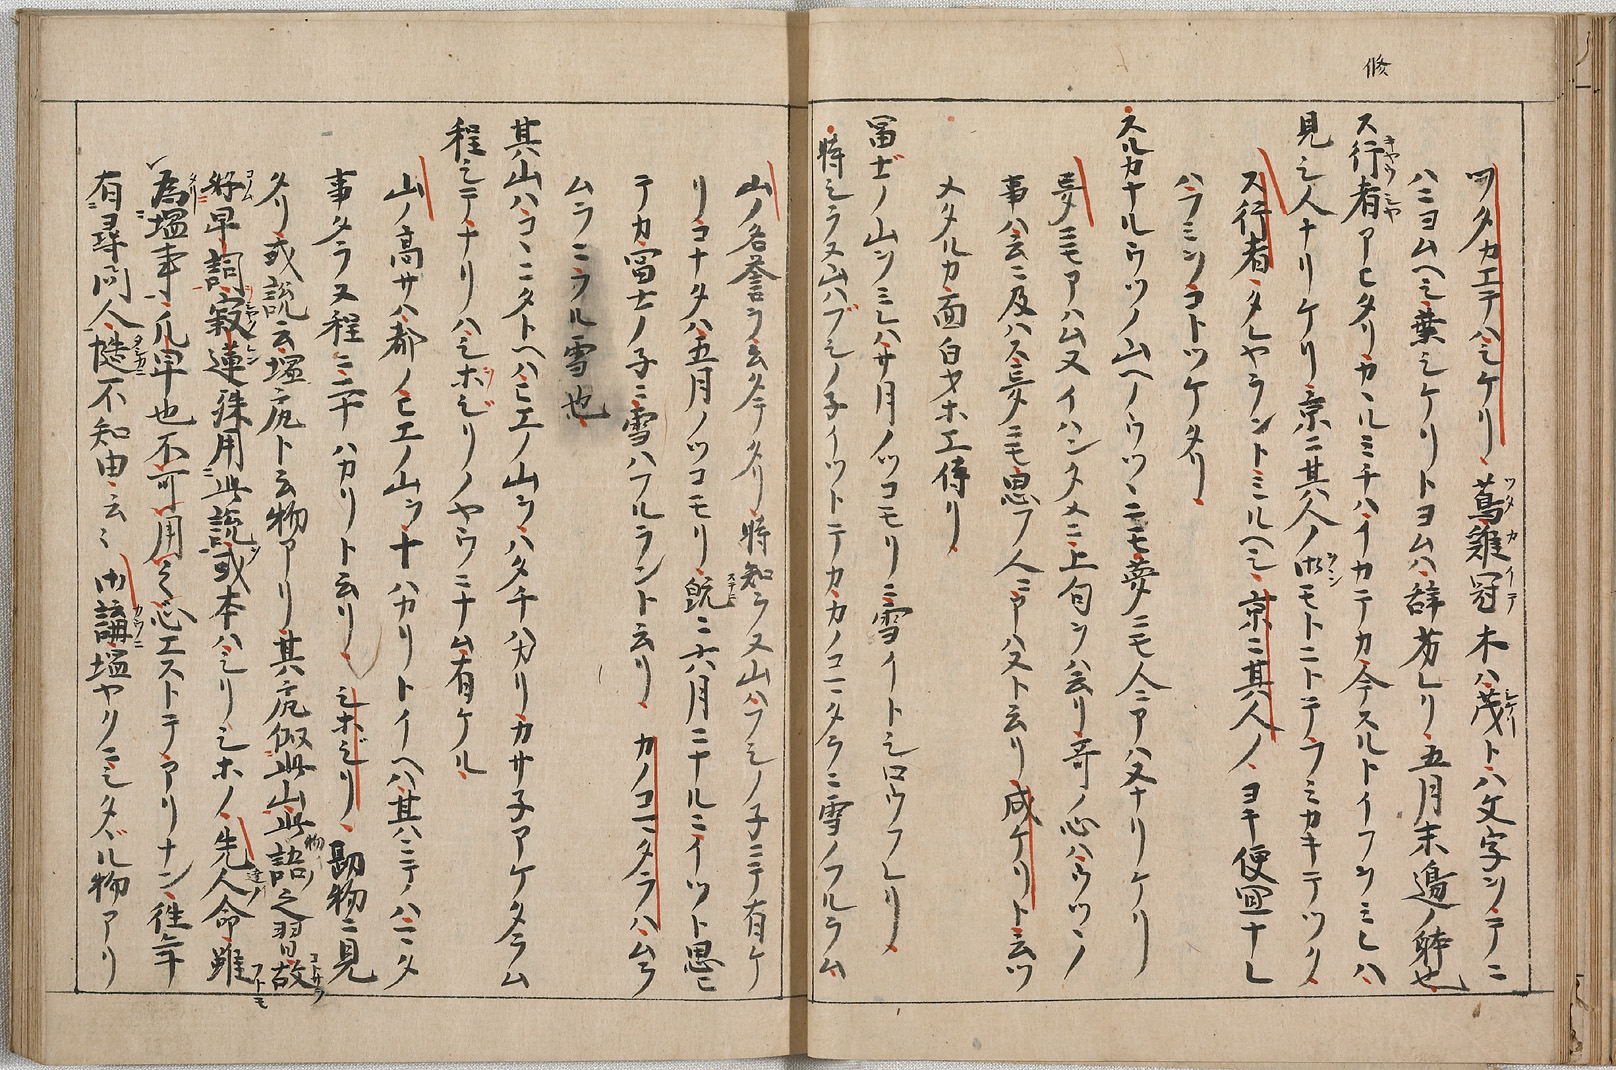 修
ツタカエテハシケリ 蔦雞冠木ハ茂トハ文字ソテニ
ハニヨムヘシ葉シケリトヨムハ辞 五月末邊ノ躰也
ス行者アヒタリカヽルミチハイカテカ今スルトイフヲミレハ
見シ人ナリケリ京ニ其人ノ御モトニトテフミカキテツク
ス行者タレヤラントミルヘシ京ニ其人ノヨキ便冝ナレ
ハフミヲコトツケタリ
スルカナルウツノ山ヘノウツヽニモ夢ニモ人ニアハヌナリケリ
夢ニモアハム又イハンタメニ上旬ヲハ云リ哥ノ心ハウツヽノ
事ハ云ニ及ハス夢ニモ思フ人ニアハストス云リ成ケリト云ツ
メタルカ面白オホエ侍リ
冨士ノ山ヲミレハサ月ノツコモリニ雪イトシロウフレリ
時シラヌ山ハフシノ子イツトテカカノコマタラニ雪ノフルラム
山ノ名誉ラ云タテタリ時知ラヌ山ハフシノ子ニテ有ケ
リコナタハ五月ノツコモリ既ニ六月ニナルニイツト思ヒ
テカ冨士ノ子ニ雪ハフルラント云リ カノコマタラハムラ
ムラニフル雪也
其山ハコヽニタトヘハヒエノ山ヲハタチハカリカサ子アケタラム
程シテナリハシホシリノヤウニナム有ケル
山ノ高サハ都ノヒエノ山ヲ十ハカリトイヘハ其ハニテハニタ
事タラヌ程ニ二十ハカリト云リ シホシリ 勘物ニ見
タリ或説云塩尻ト云物アリ其尻似此山此詞之習故
好卑詞寂蓮殊用此説或本ハシリシホノ先人命雖
為塩事凡卑也不可用之心エストテアリナン徃年
有尋問人慥不知由云々 御講塩ヤクニシタヽル物アリ